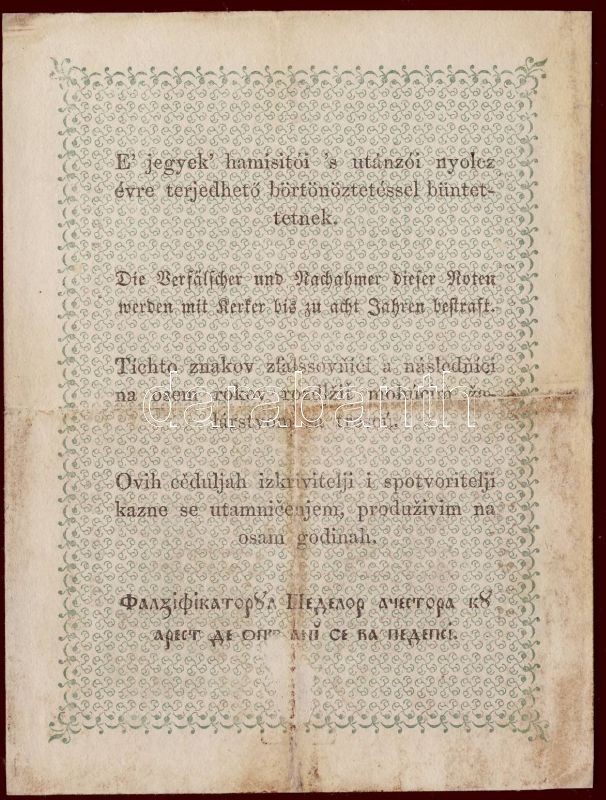 E' jegyek' hamisitói 's utánzói nyolcz
évre terjedhető börtönöztetéssel büntet-
tetnek.
Die Verfälscher und Nachahmer dieser Noten
werden mit Kerker bis zu acht Jahren bestraft.
Tichto znakov zfalssovňíci a následňíci
na osem rokov rozdlžiť mohúcim ža-
lárstvom
Ovih céduljah izkrivitelji i spotvoritelji
kazne se utamničenjem, produživim na
osam godinah.
Фалзіфікаторꙋл Педелор ачестора кꙋ
арест де ані се ва педепсі.
darabanth